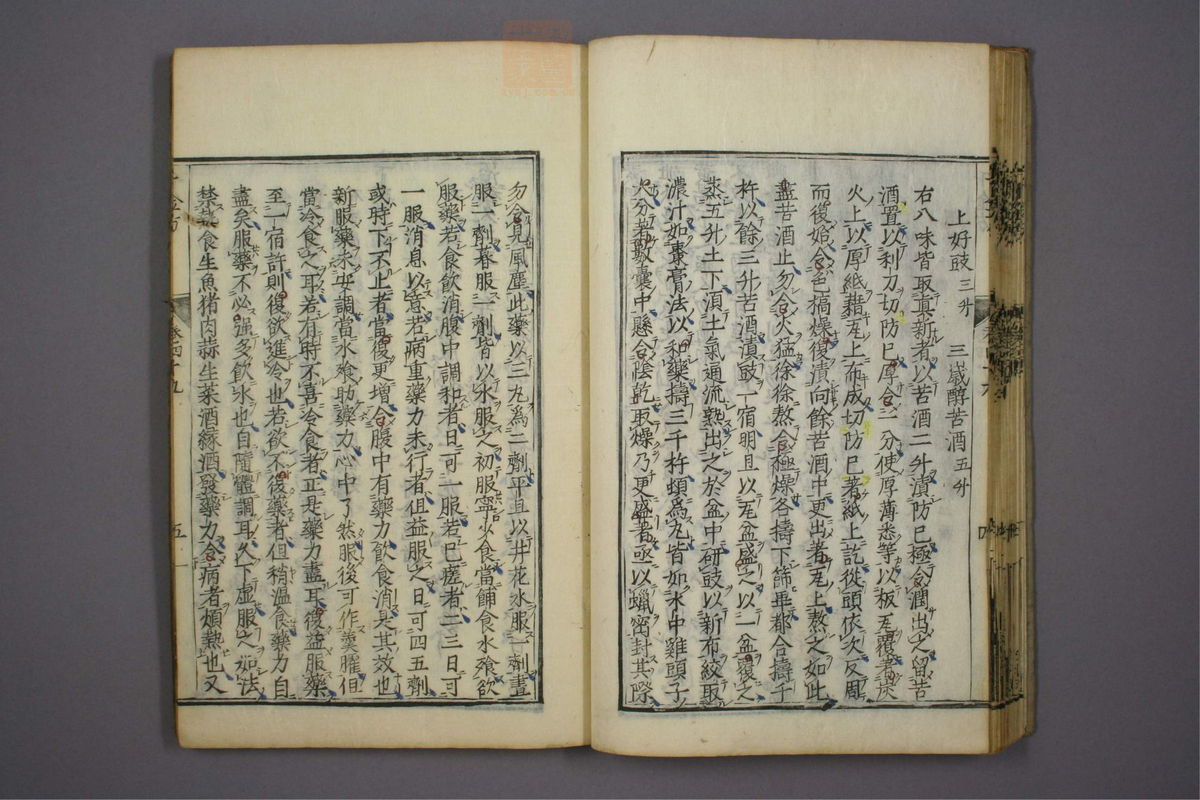 上好豉三升　三歲醇苦酒五升
右八味皆取真新者以苦酒二升漬防巳極令潤出之留苦
酒置以利刀切防巳厚令一分使厚薄悉等以板瓦覆著灰
火上以厚紙藉瓦上布成切防巳著紙上訖從頭依次反周
而復始令色槁燥復漬向餘苦酒中更出著瓦上熬之如此
盡苦酒止勿令火猛徐徐熬令極燥各擣下篩畢都合擣千
杵以餘三升苦酒漬豉一宿明旦以瓦盆盛之以一盆覆之
蒸五升土下須土氣通流熟出之於盆中研豉以新布絞取
濃汁如棗膏法以和藥擣三千杵頓為丸皆如水中雞頭子
大分著數囊中懸令陰乾取燥乃更盛著亟以蠟密封其際
勿令見風塵此藥以三丸為一劑平旦以井花水服一劑晝
服一劑暮服一劑皆以水服之初服寧少食當餔食水飧欲
服藥若食飲消腹中調和者日可一服若巳瘥者二三日可
一服消息以意若病重藥力未行者但益服之日可四五劑
或時下不止者當復更增令腹中有藥力飲食消是其效也
新服藥未安調當水飧助藥力心中了然服後可作羹臛但
當冷食之耳若有時不喜冷食者正是藥力盡耳復益服藥
至一宿許則復欲進冷也若欲不復藥者但稍溫食藥力自
盡矣服藥不必强多飲水也自隨體調耳久下虛服之如法
禁熱食生魚猪肉蒜生菜酒緣酒發藥力令病者煩熱也又
卷四十九
五